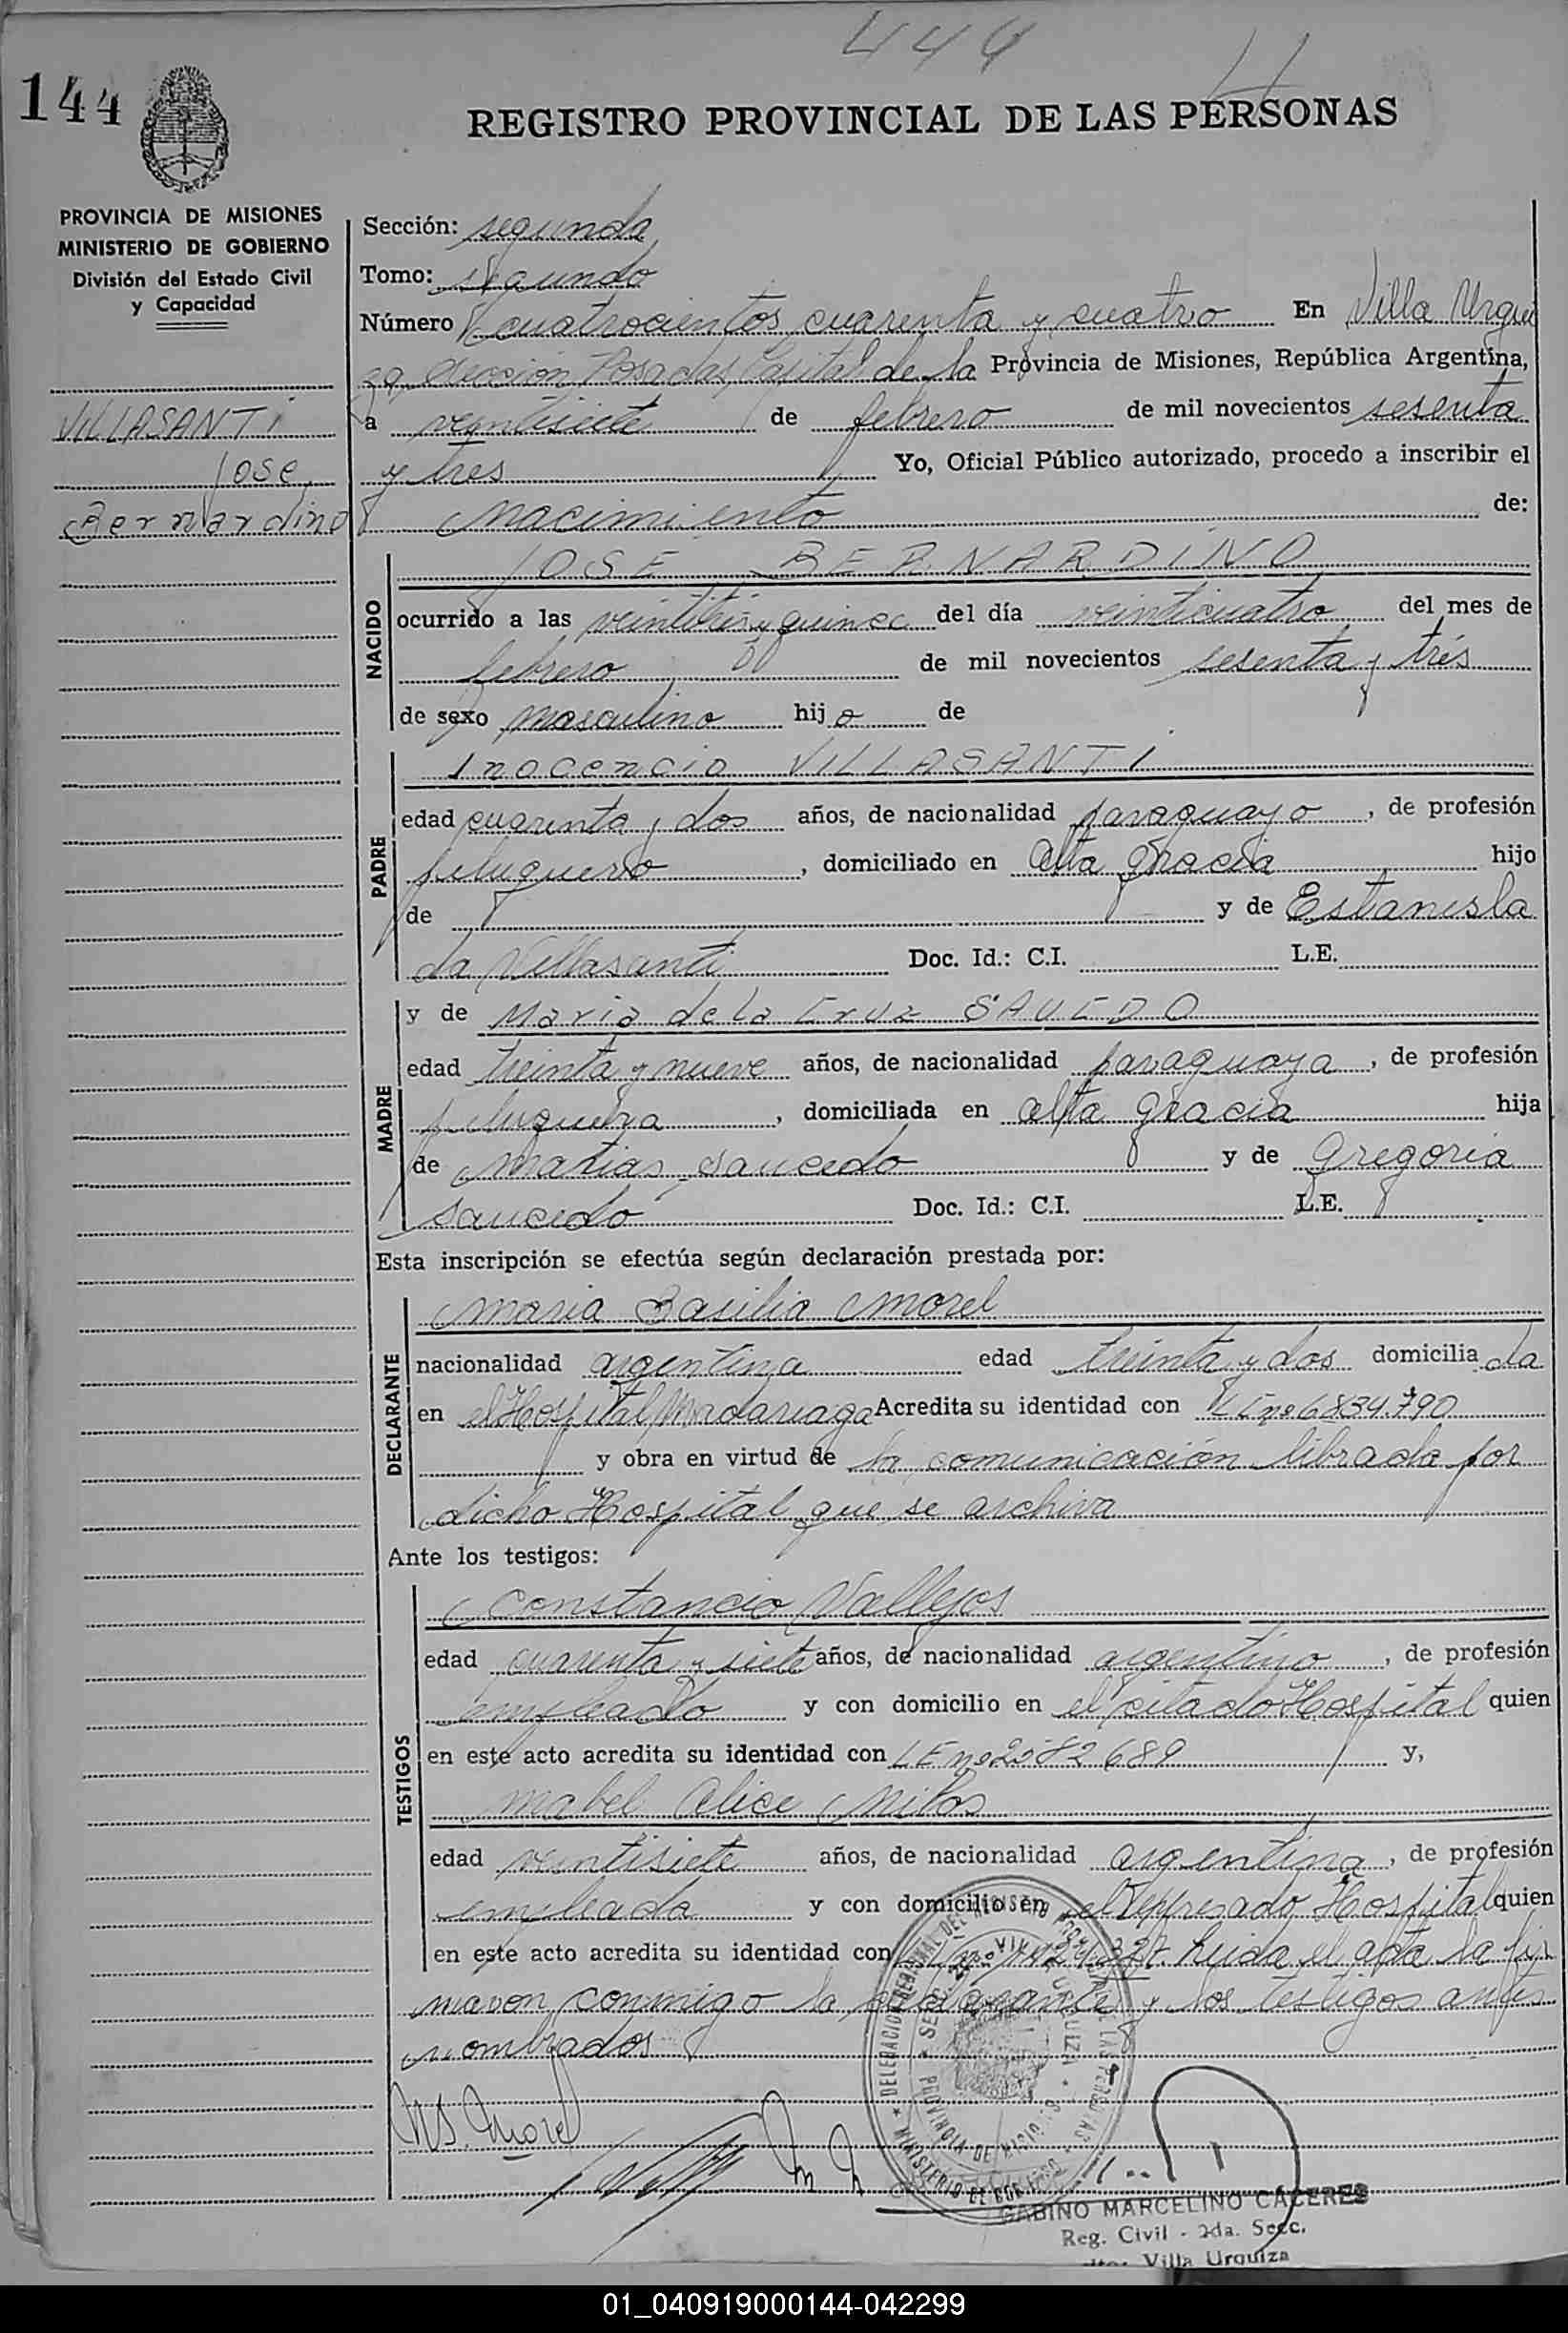 444
144
REGISTRO PROVINCIAL DE LAS PERSONAS
PROVINCIA DE MISIONES
MINISTERIO DE GOBIERNO
División del Estado Civil
y Capacidad
VILLASANTI
Jose
Bernardino
Sección: segunda
Tomo: segundo
Número cuatrocientos cuarenta y cuatro En Villa Urqui
za, Sección Posadas, Capital de la Provincia de Misiones, República Argentina,
a veintisiete de febrero de mil novecientos sesenta
y tres Yo, Oficial Público autorizado, procedo a inscribir el
nacimiento de:
NACIDO
JOSE BERNARDINO
ocurrido a las y quince del día veinticuatro del mes de
febrero de mil novecientos sesenta y trés
de sexo masculino hijo de
PADRE
Inocencio VILLASANTI
edad cuarenta y dos años, de nacionalidad paraguayo, de profesión
peluquero, domiciliado en Alta Gracia hijo
de y de Estanisla
da Villasanti Doc. Id.: C.I. L.E.
MADRE
y de Maria de la Cruz SAUCEDO
edad treinta y nueve años, de nacionalidad paraguaya, de profesión
peluquera, domiciliada en Alta Gracia hija
de Matias Saucedo y de Gregoria
Saucedo Doc. Id.: C.I. L.E.
Esta inscripción se efectúa según declaración prestada por:
DECLARANTE
Maria Basilia Morel
nacionalidad argentina edad treinta y dos domiciliada
en el Hospital Madariaga Acredita su identidad con nº 6834.790
y obra en virtud de la comunicación librada por
dicho Hospital que se archiva
Ante los testigos:
TESTIGOS
Constancio Vallejos
edad cuarenta y siete años, de nacionalidad argentino, de profesión
empleado y con domicilio en el citado Hospital quien
en este acto acredita su identidad con LE nº 2582689 y,
Mabel Alice
edad veintisiete años, de nacionalidad argentina, de profesión
empleada y con domicilio en el expresado Hospital quien
en este acto acredita su identidad con Leida el acta la fir
maron conmigo la declarante y los testigos antes
nombrados
MB. Morel
GABINO MARCELINO CACERES
Reg. Civil - 2da. Secc.
Villa Urquiza
01_040919000144-042299